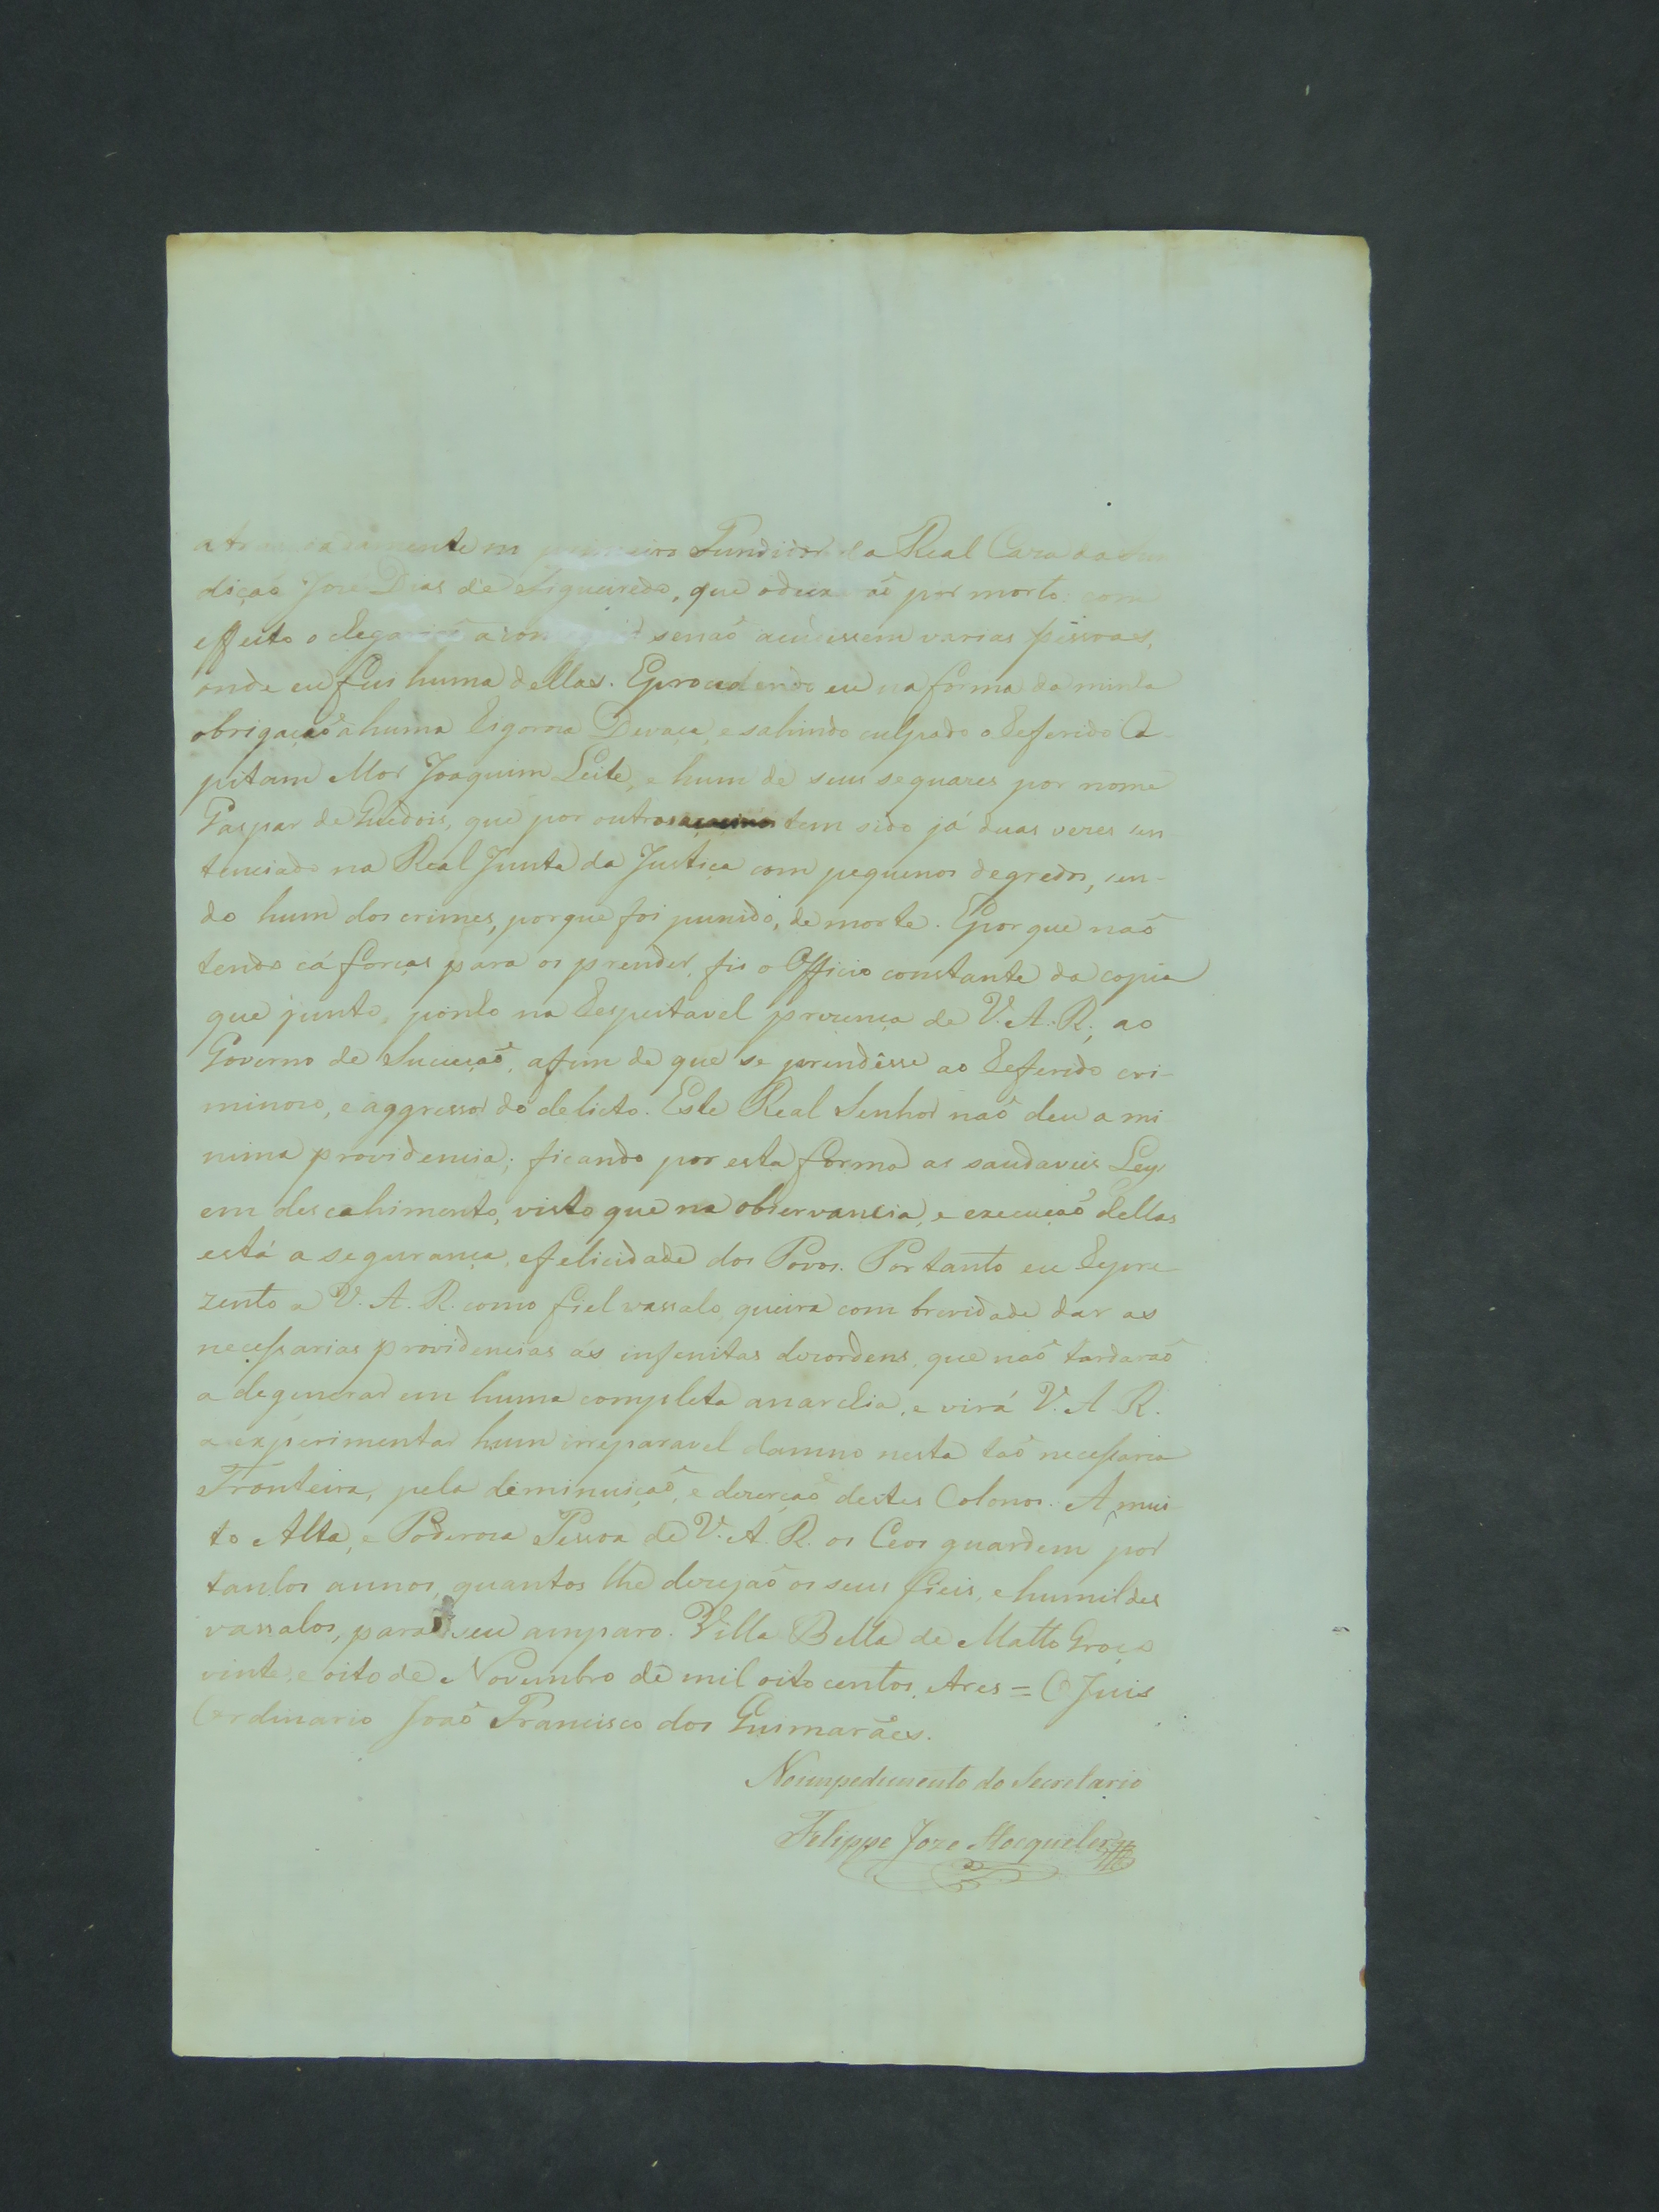 primeiro Fundidor da Real Caza da Fun
diçaõ Joze Dias de Siqueiredo, que o deixaraõ por morto: com
effeito o chegariaõ a senaõ acudissem varias pessoas,
onde eu fui huma dellas. E procedendo eu na forma da minha
obrigaçaõ a huma Rigoroza Devaça, e sahindo culpado o Referido Ca-
pitam Mor Joaquim Leite, e hum de seus sequazes por nome
Gaspar de que por outros tem sido já duas vezes sen
tenciado na Real Junta da Justiça com pequenos degredos, sen-
do hum dos crimes, porque foi punido, de morte. E porque naõ
tendo cá forças para os prender, fis o Officio constante da copia
que junto, ponho na Respeitavel prezença de V. A. R., ao
Governo de Sucessaõ, afim de que se prendêsse ao Referido cri-
minozo, e aggressor do delicto. Este Real Senhor naõ deu a mi
nima providencia; ficando por esta forma as saudaveis Leys
em descahimento, visto que na observancia, e execuçaõ dellas
está a segurança, e felicidade dos Povos. Portanto eu Repre-
zento a V. A. R. como fiel vassalo, queira com brevidade dar as
necessarias providencias ás infenitas dezordens, que naõ tardaraõ
a degenerar em huma completa anarchia, e virá V. A. R.
a experimentar hum irreparavel damno nesta taõ necessaria
Fronteira, pela deminuiçaõ, e dezerçaõ destes Colonos. A mui
to Alta, e Poderoza Pessoa de V. A. R. os Ceos guardem por
tantos annos, quantos lhe dezejaõ os seus fieis, e humildes
vassalos, para seu amparo. Villa Bella de Matto Groço
vinte, e oito de Novembro de mil oito centos, etres = O Juis
Ordinario Joaõ Francisco dos Guimarães.
No impedimento do Secretario
Felippe Joze